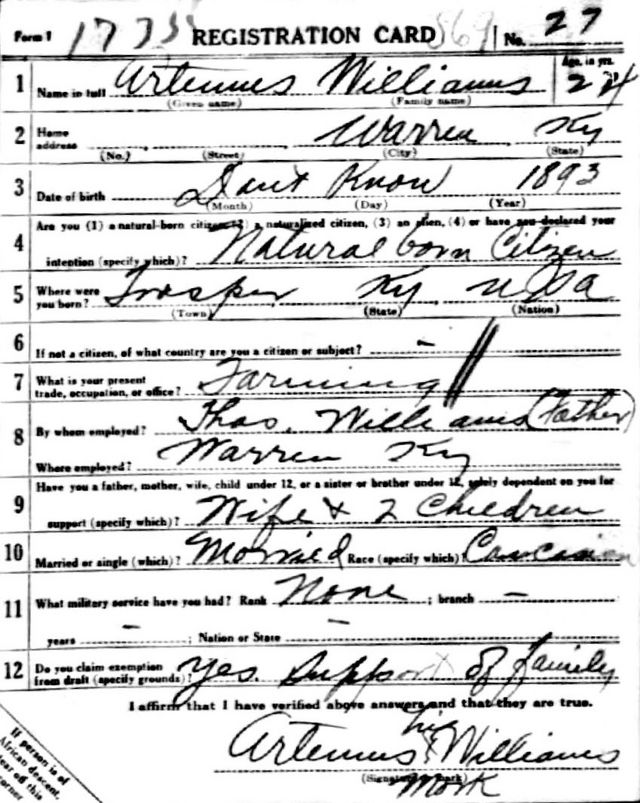 Form 1 1735 REGISTRATION CARD 569 No. 27
1 Name in full Artemus Williams Age, in yrs. 24
(Given name) (Family name)
2 Home address Warren Ky
(No.) (Street) (City) (State)
3 Date of birth Dont Know 1893
(Month) (Day) (Year)
Are you (1) a natural-born citizen, (2) a naturalized citizen, (3) an alien, (4) or have you declared your
4 intention (specify which)? Natural born Citizen
5 Where were you born? Trosper Ky USA
(Town) (State) (Nation)
6 If not a citizen, of what country are you a citizen or subject? -
7 What is your present trade, occupation, or office? Farming
8 By whom employed? Thos. Williams (Father)
Where employed? Warren Ky
Have you a father, mother, wife, child under 12, or a sister or brother under 12, solely dependent on you for
9 support (specify which)? Wife & 2 Children
10 Married or single (which)? Married Race (specify which)? Caucasian
11 What military service have you had? Rank None ; branch -
years - ; Nation or State -
12 Do you claim exemption from draft (specify grounds)? Yes. Support of family
I affirm that I have verified above answers and that they are true.
his
Artemus X Williams
(Signature or mark)
Mark
If person is of
African descent,
tear off this
corner